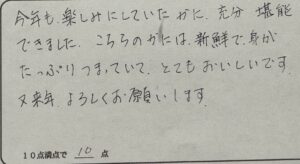 今年も楽しみにしていたかに、充分堪能
できました。こちらのかには、新鮮で、身が
たっぷりつまっていて、とてもおいしいです。
又来年、よろしくお願いします。
10点満点で 10 点